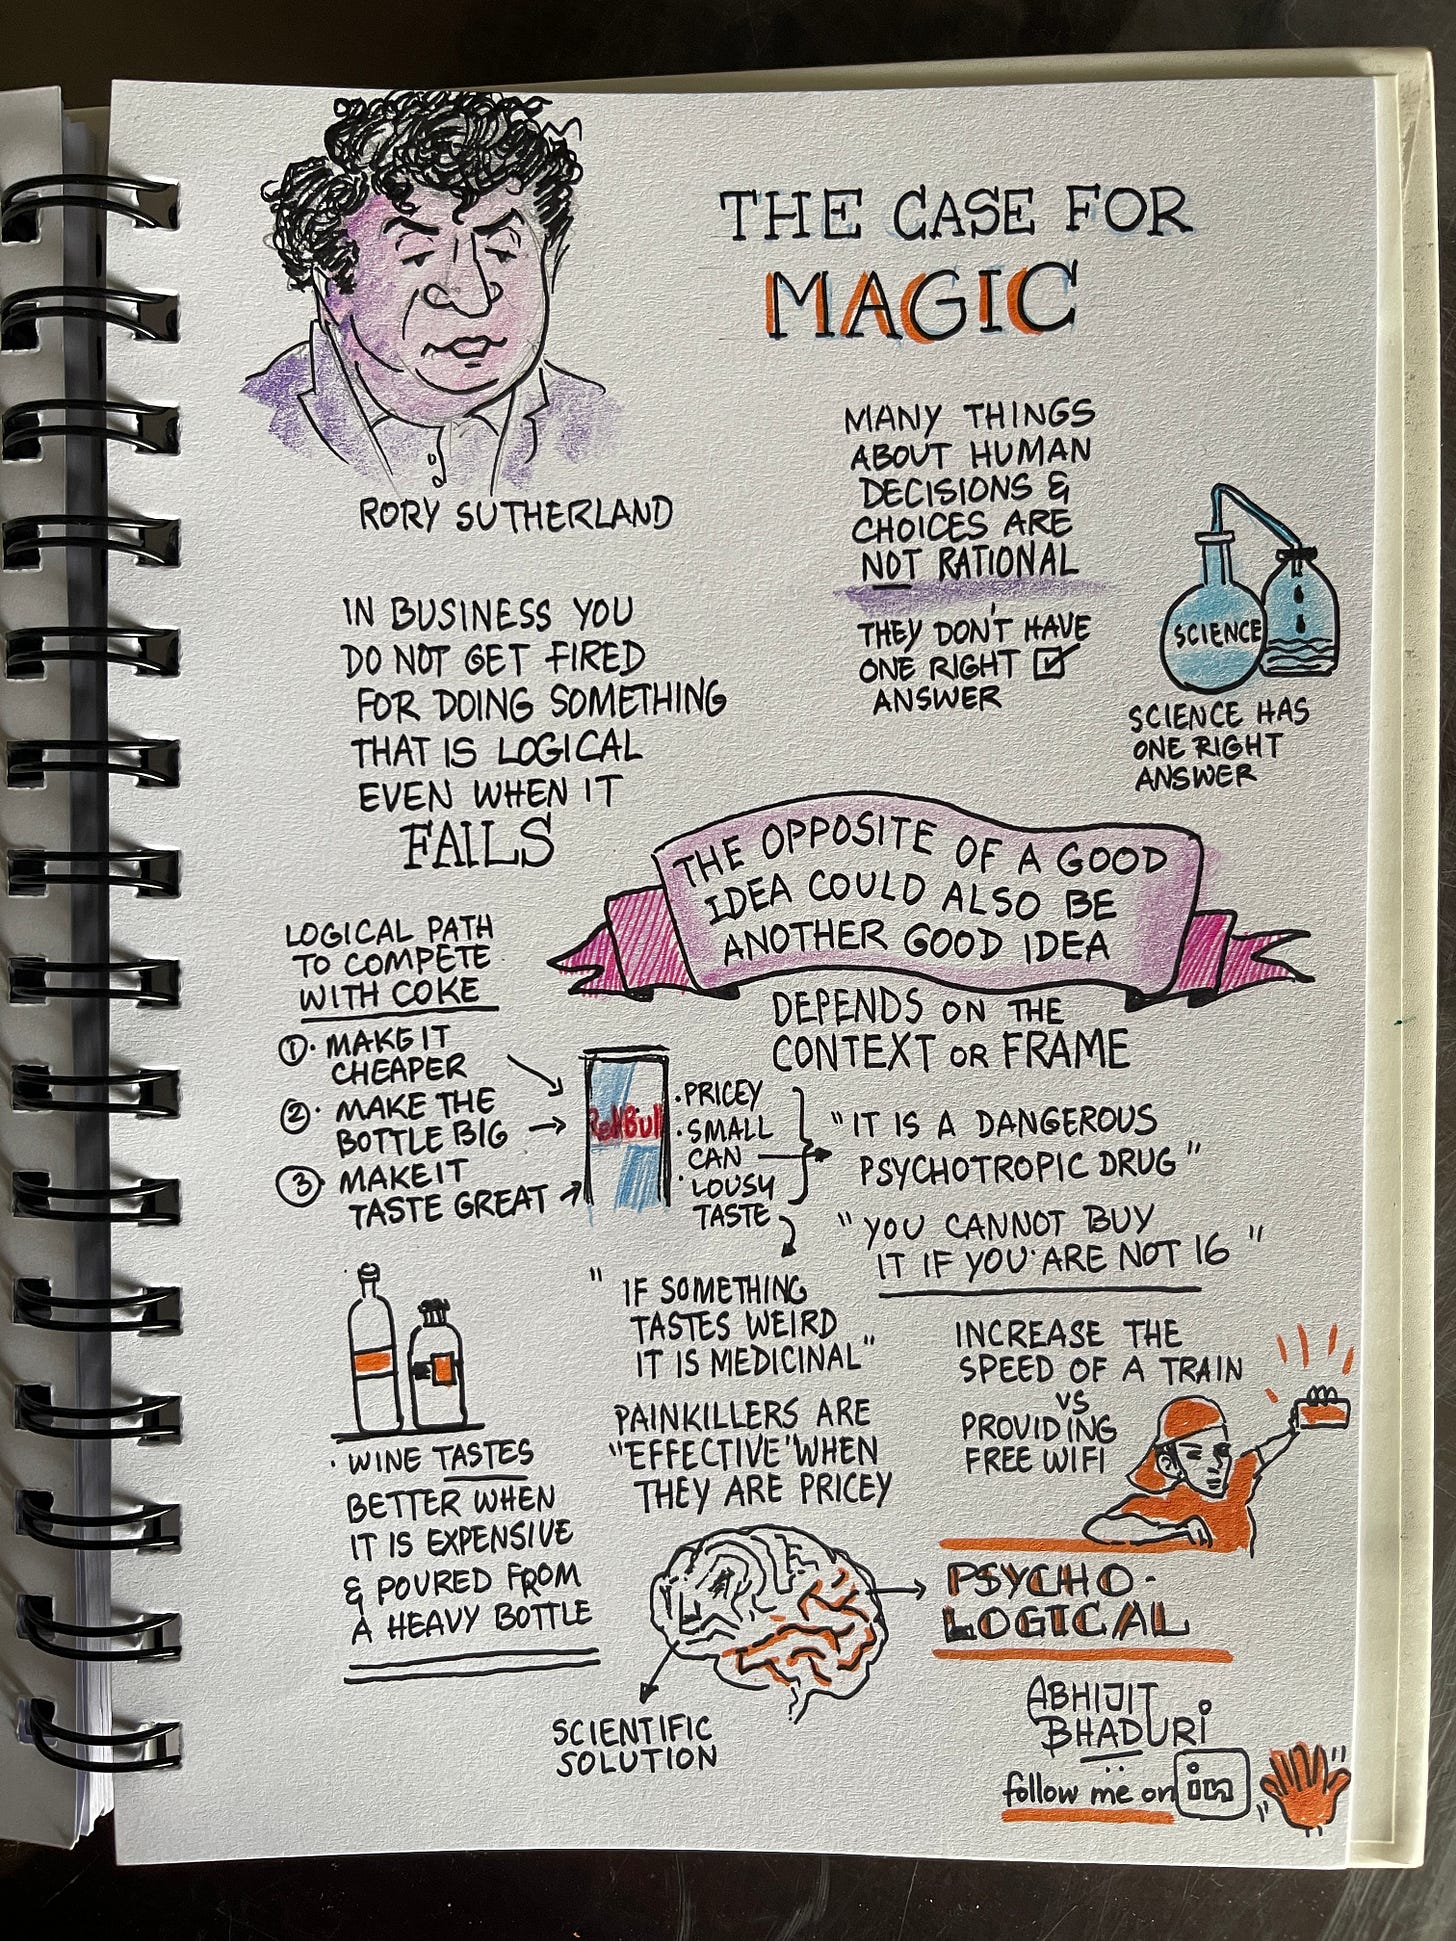 THE CASE FOR
MAGIC
RORY SUTHERLAND
MANY THINGS
ABOUT HUMAN
DECISIONS &
CHOICES ARE
NOT RATIONAL
THEY DON'T HAVE
ONE RIGHT ☑
ANSWER
SCIENCE
SCIENCE HAS
ONE RIGHT
ANSWER
IN BUSINESS YOU
DO NOT GET FIRED
FOR DOING SOMETHING
THAT IS LOGICAL
EVEN WHEN IT
FAILS
THE OPPOSITE OF A GOOD
IDEA COULD ALSO BE
ANOTHER GOOD IDEA
DEPENDS ON THE
CONTEXT OR FRAME
LOGICAL PATH
TO COMPETE
WITH COKE
①· MAKE IT
CHEAPER
②· MAKE THE
BOTTLE BIG
③· MAKE IT
TASTE GREAT
RedBull
· PRICEY
· SMALL
CAN
· LOUSY
TASTE
"IT IS A DANGEROUS
PSYCHOTROPIC DRUG"
"YOU CANNOT BUY
IT IF YOU ARE NOT 16"
"IF SOMETHING
TASTES WEIRD
IT IS MEDICINAL"
PAINKILLERS ARE
"EFFECTIVE" WHEN
THEY ARE PRICEY
INCREASE THE
SPEED OF A TRAIN
VS
PROVIDING
FREE WIFI
· WINE TASTES
BETTER WHEN
IT IS EXPENSIVE
& POURED FROM
A HEAVY BOTTLE
SCIENTIFIC
SOLUTION
PSYCHO-
LOGICAL
ABHIJIT
BHADURI
follow me on in